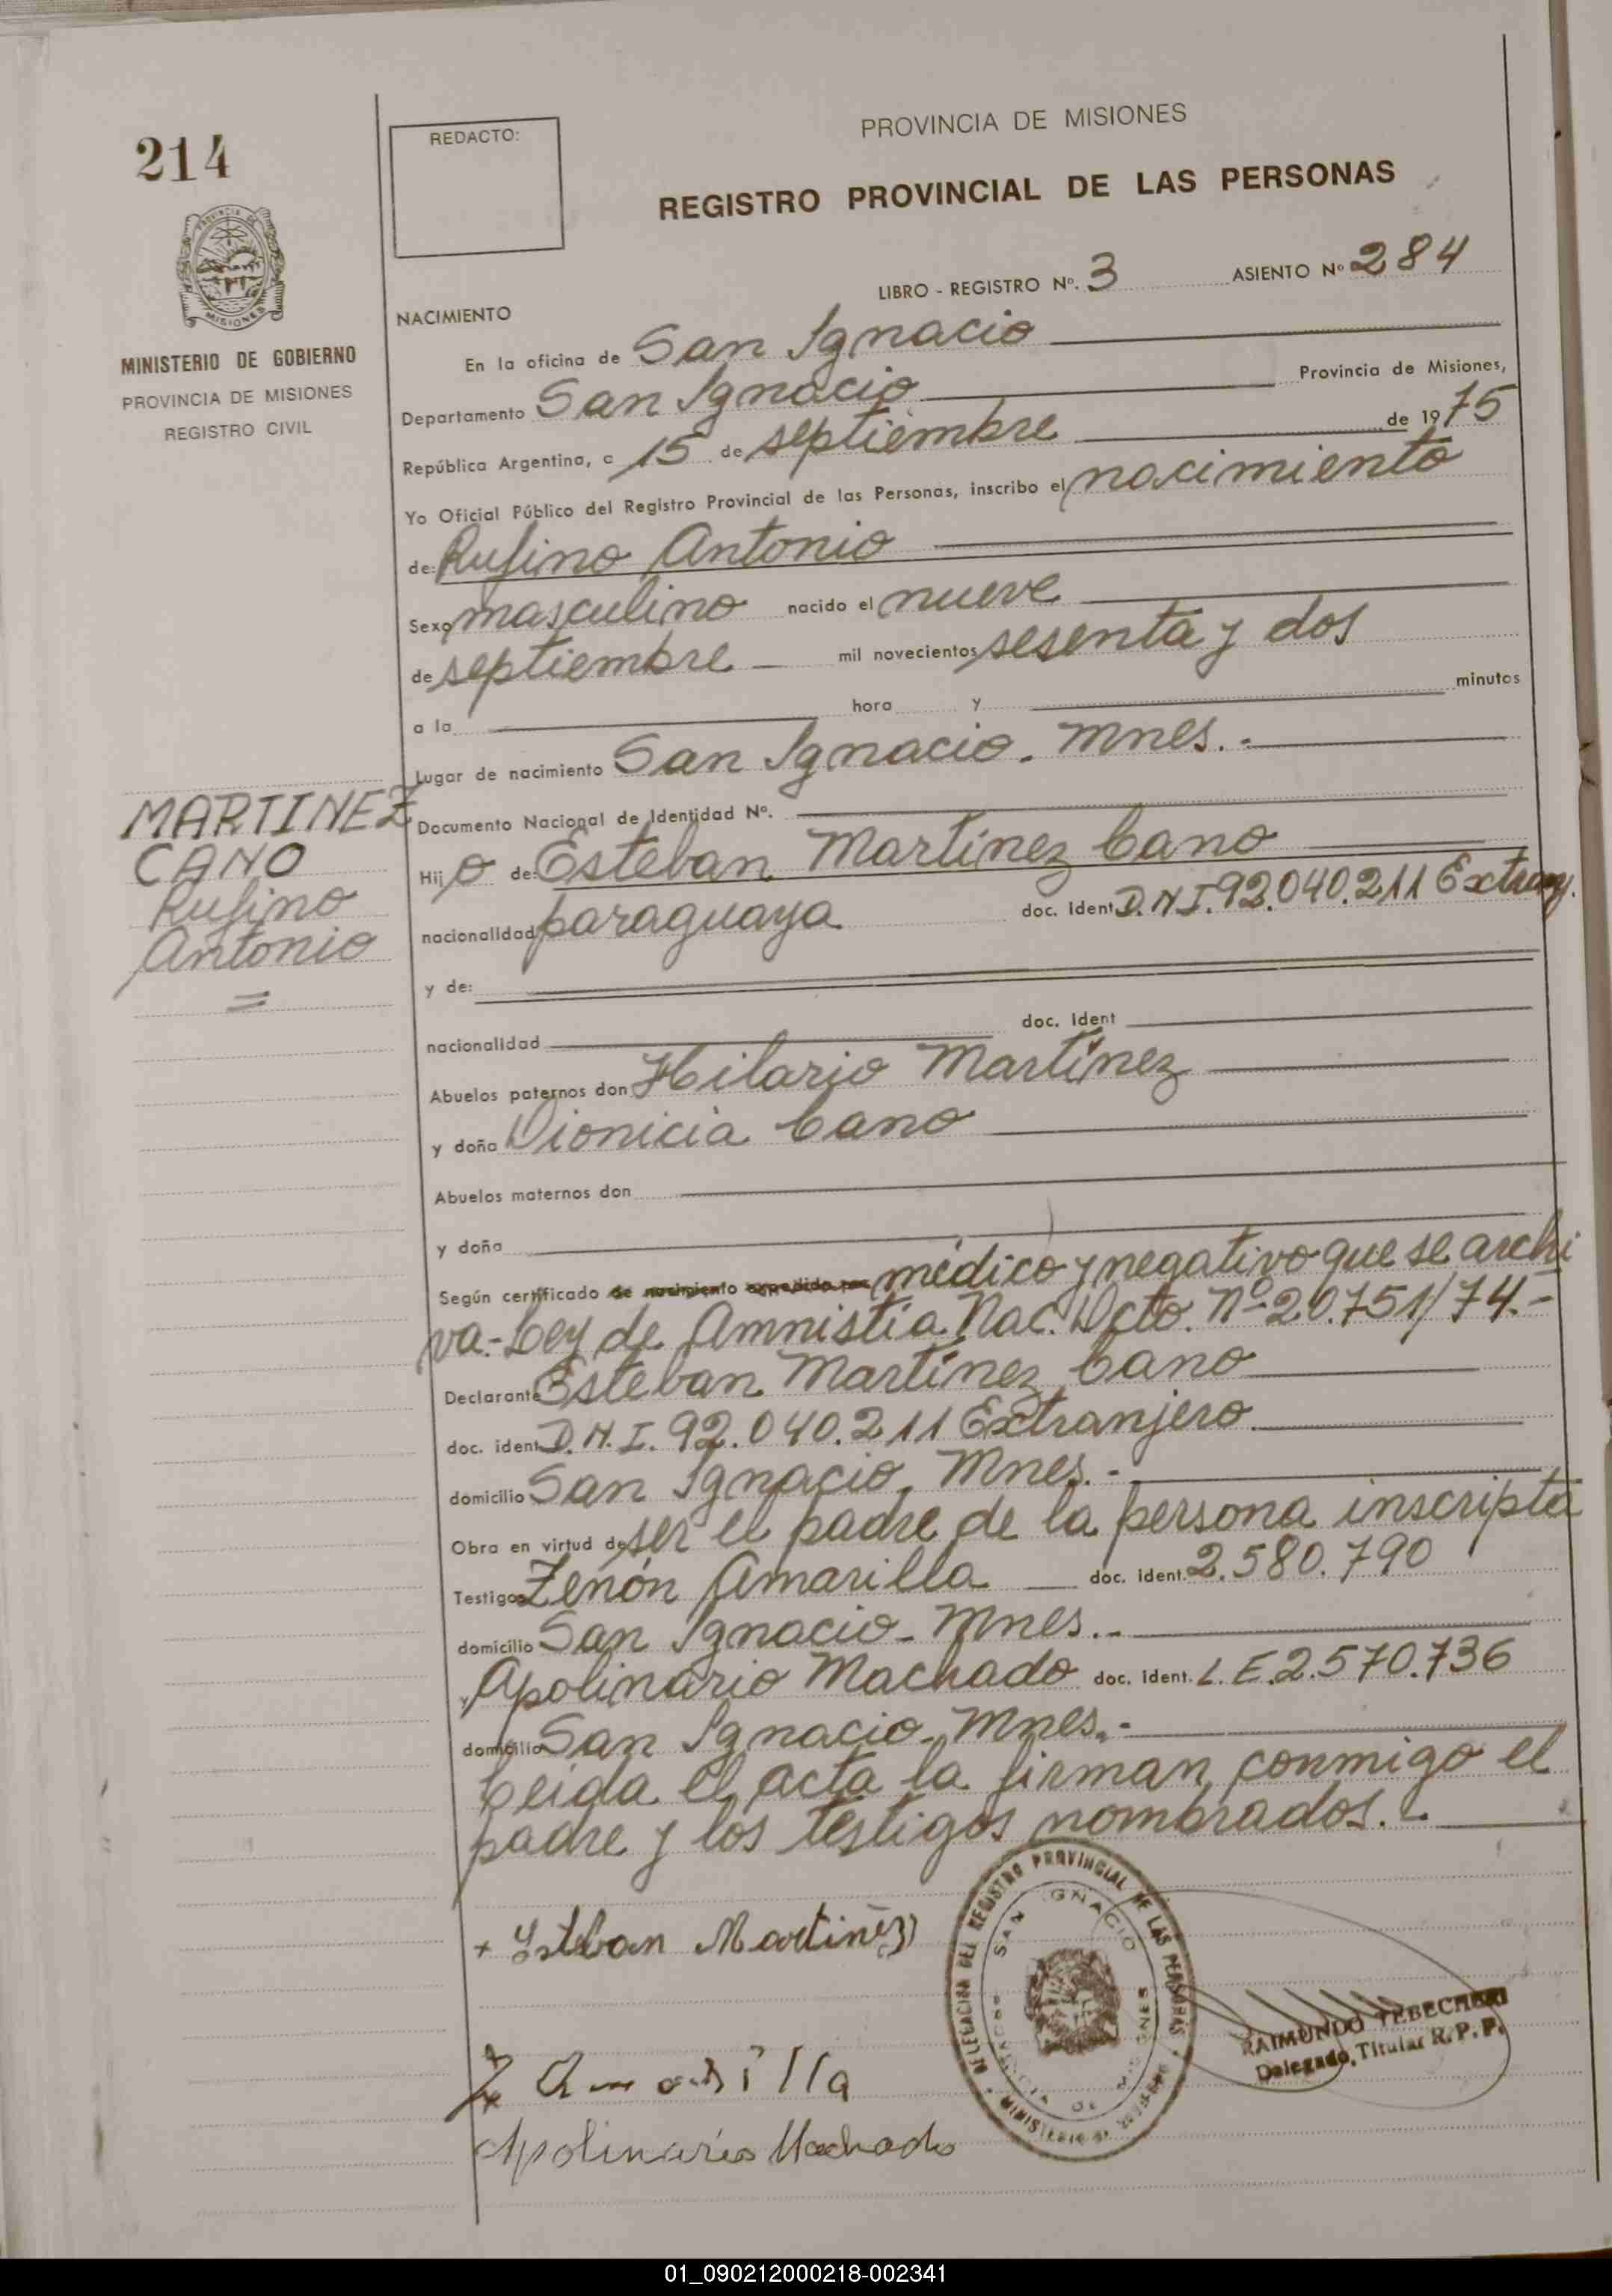 214
REDACTO:
PROVINCIA DE MISIONES
REGISTRO PROVINCIAL DE LAS PERSONAS
PROVINCIA DE
MISIONES
MINISTERIO DE GOBIERNO
PROVINCIA DE MISIONES
REGISTRO CIVIL
LIBRO - REGISTRO Nº. 3 ASIENTO Nº 284
NACIMIENTO
En la oficina de San Ignacio
Departamento San Ignacio Provincia de Misiones,
República Argentina, a 15 de septiembre de 1975
Yo Oficial Público del Registro Provincial de las Personas, inscribo el nacimiento
de: Rufino Antonio
Sexo masculino nacido el nueve
de septiembre mil novecientos sesenta y dos
a la hora y minutos
Lugar de nacimiento San Ignacio. Mnes.-
MARTINEZ
CANO
Rufino
Antonio
Documento Nacional de Identidad Nº.
Hijo de: Esteban Martínez Cano
nacionalidad paraguaya doc. ident D.N.I. 92.040.211 Extranj.
y de:
nacionalidad doc. ident
Abuelos paternos don Hilario Martínez
y doña Dionicia Cano
Abuelos maternos don
y doña
Según certificado de nacimiento expedido por médico y negativo que se archi
va.- Ley de Amnistía Nac. Dcto. Nº 20.751/74.-
Declarante Esteban Martínez Cano
doc. ident D.N.I. 92.040.211 Extranjero
domicilio San Ignacio, Mnes.-
Obra en virtud de ser el padre de la persona inscripta
Testigos Zenón Amarilla doc. ident. 2.580.790
domicilio San Ignacio - Mnes..-
y Apolinario Machado doc. ident. L.E. 2.570.736
domicilio San Ignacio - Mnes..-
Leída el acta la firman conmigo el
padre y los testigos nombrados.-
+ Esteban Martinez
Z Amarilla
Apolinario Machado
DELEGACION DEL REGISTRO PROVINCIAL DE LAS PERSONAS
SAN IGNACIO
RAIMUNDO TEBECHERI
Delegado Titular R. P. P.
01_090212000218-002341